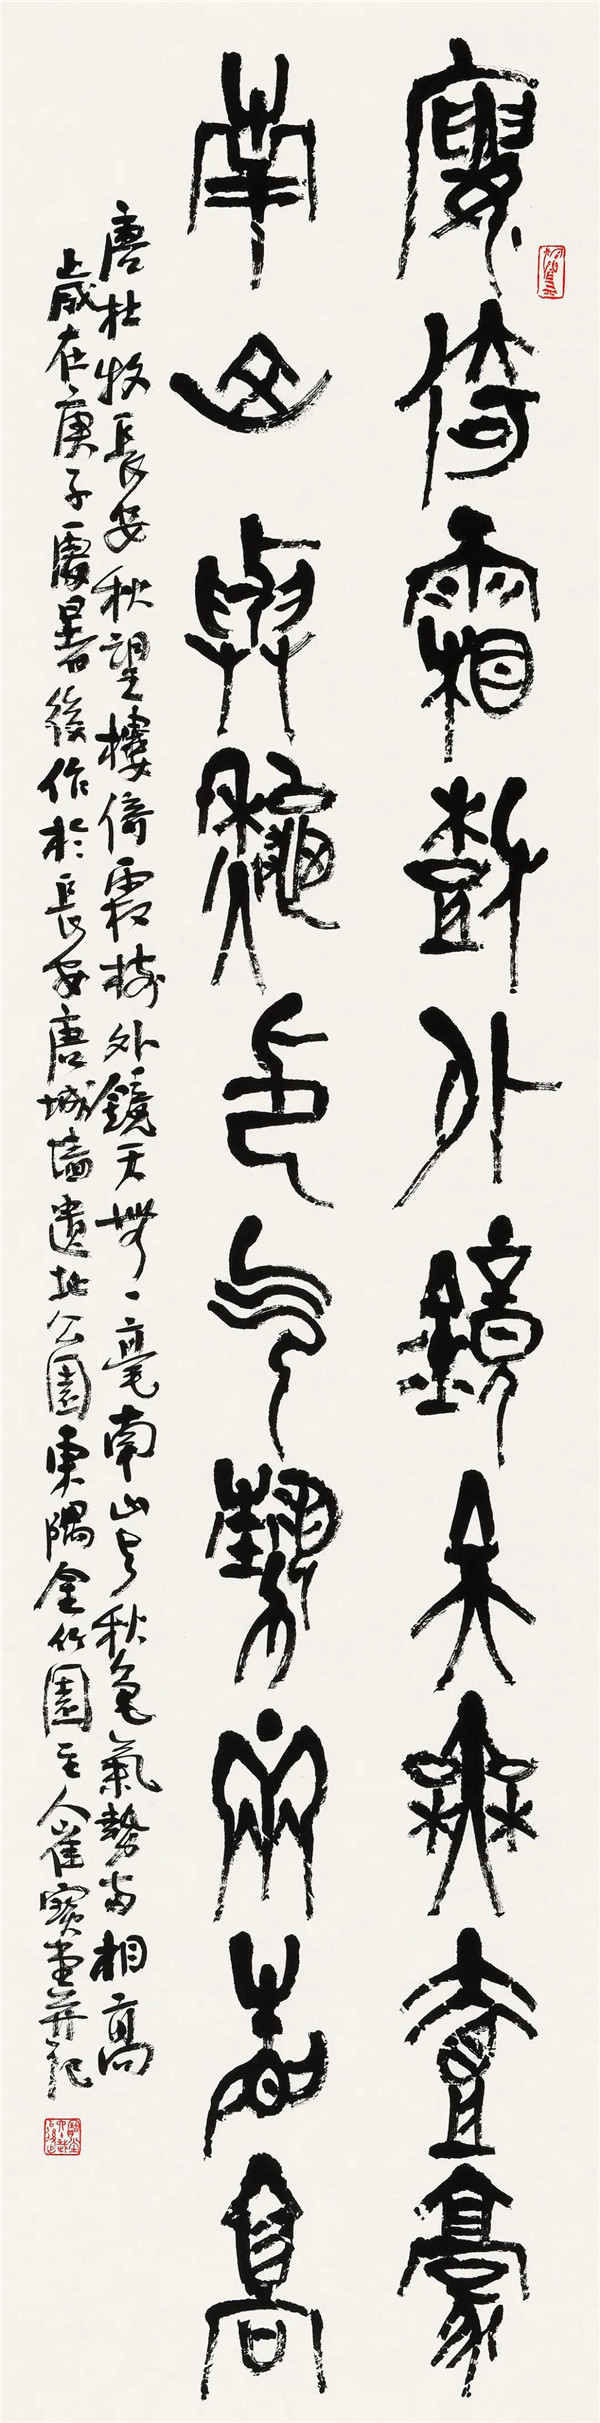 楼倚霜树外镜天无壹毫
南山与秋色气势两相高
唐杜牧長安秋望樓倚霜樹外鏡天無一毫南山与秋色氣勢両相高
上歲在庚子處暑後作於長安唐城墙遺址公園東隅金竹園主人崔寶堂并記